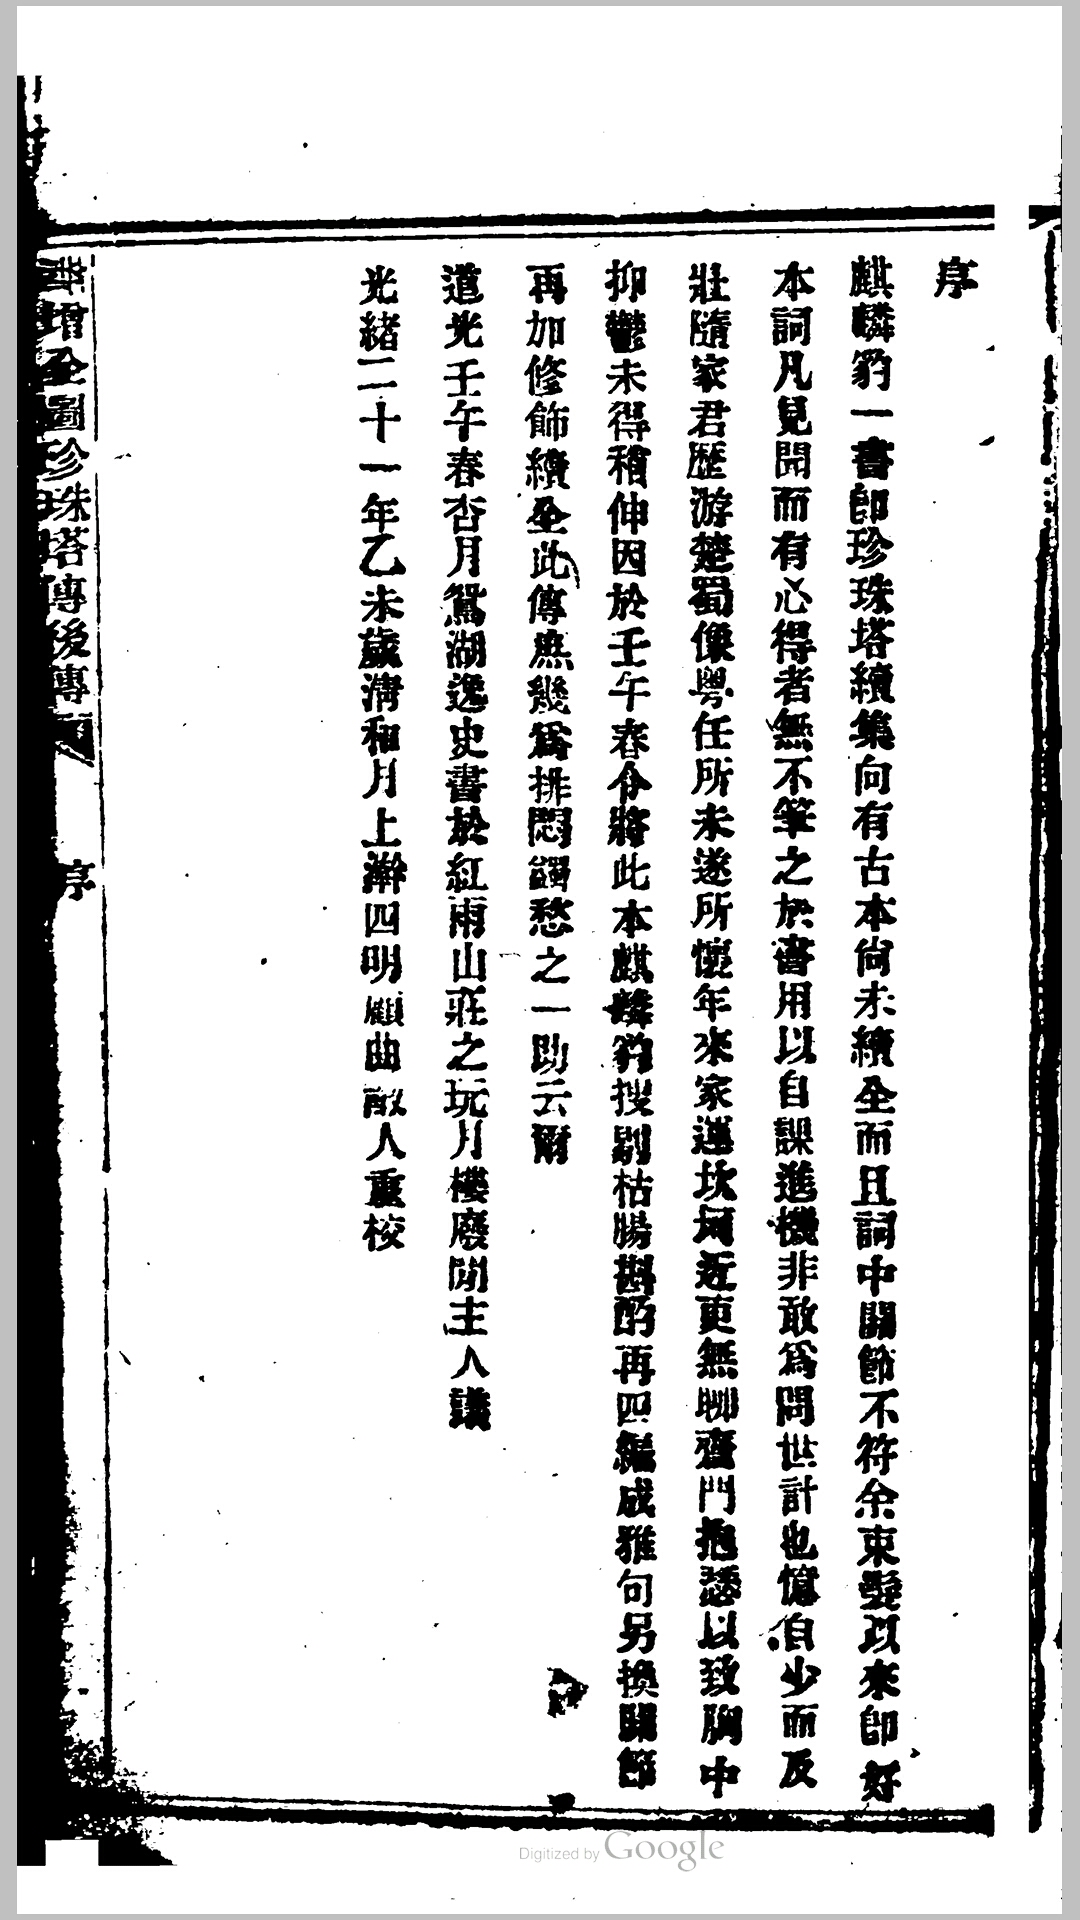 序
麒麟豹一書卽珍珠塔續集向有古本尙未續全而且詞中關節不符余束髮以來卽好
本詞凡見聞而有心得者無不筆之於書用以自課進機非敢爲問世計也憶自少而及
壯隨家君歷游楚蜀豫粤任所未遂所懷年來家運坎坷近更無聊齋門抱恙以致胸中
抑鬱未得稍伸因於壬午春令將此本麒麟豹搜剔枯腸斟酌再四編成雅句另換關節
再加修飾續全此傳庶幾爲排悶蠲愁之一助云爾
道光壬午春杏月鴛湖逸史書於紅雨山莊之玩月樓廢閒主人議
光緖二十一年乙未歲淸和月上澣四明顧曲散人重校
增全圖珍珠塔傳後傳
序
Digitized by Google